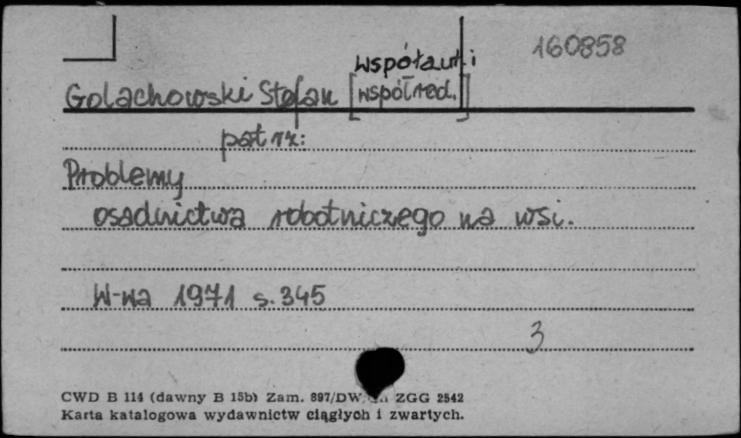 160858
współaut. i
Golachowski Stefan [współred.]
patrz:
Problemy
osadnictwa robotniczego na wsi.
W-wa 1971 s. 345
3
CWD B 114 (dawny B 15b) Zam. 897/DW ZGG 2542
Karta katalogowa wydawnictw ciągłych i zwartych.